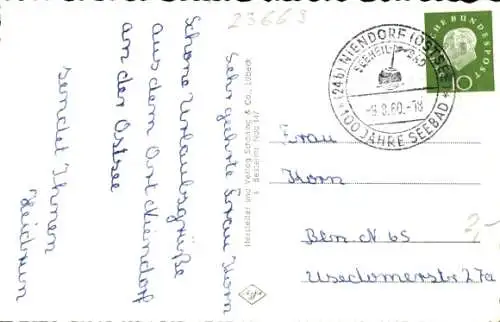 23663
Sehr geehrte Frau Horn
Schöne Urlaubsgrüße
aus dem Ort Niendorf
an der Ostsee
sendet Ihnen
Heidrun
Hersteller und Verlag Schöning & Co., Lübeck
Bestellnr. Ndo
(24b) NIENDORF (OSTSEE)
SEEHEILBAD
-9.8.60.-18
100 JAHRE SEEBAD
DEUTSCHE BUNDESPOST
10
Frau
Horn
Bln. N 65
Usedomerstr 27a
2,-